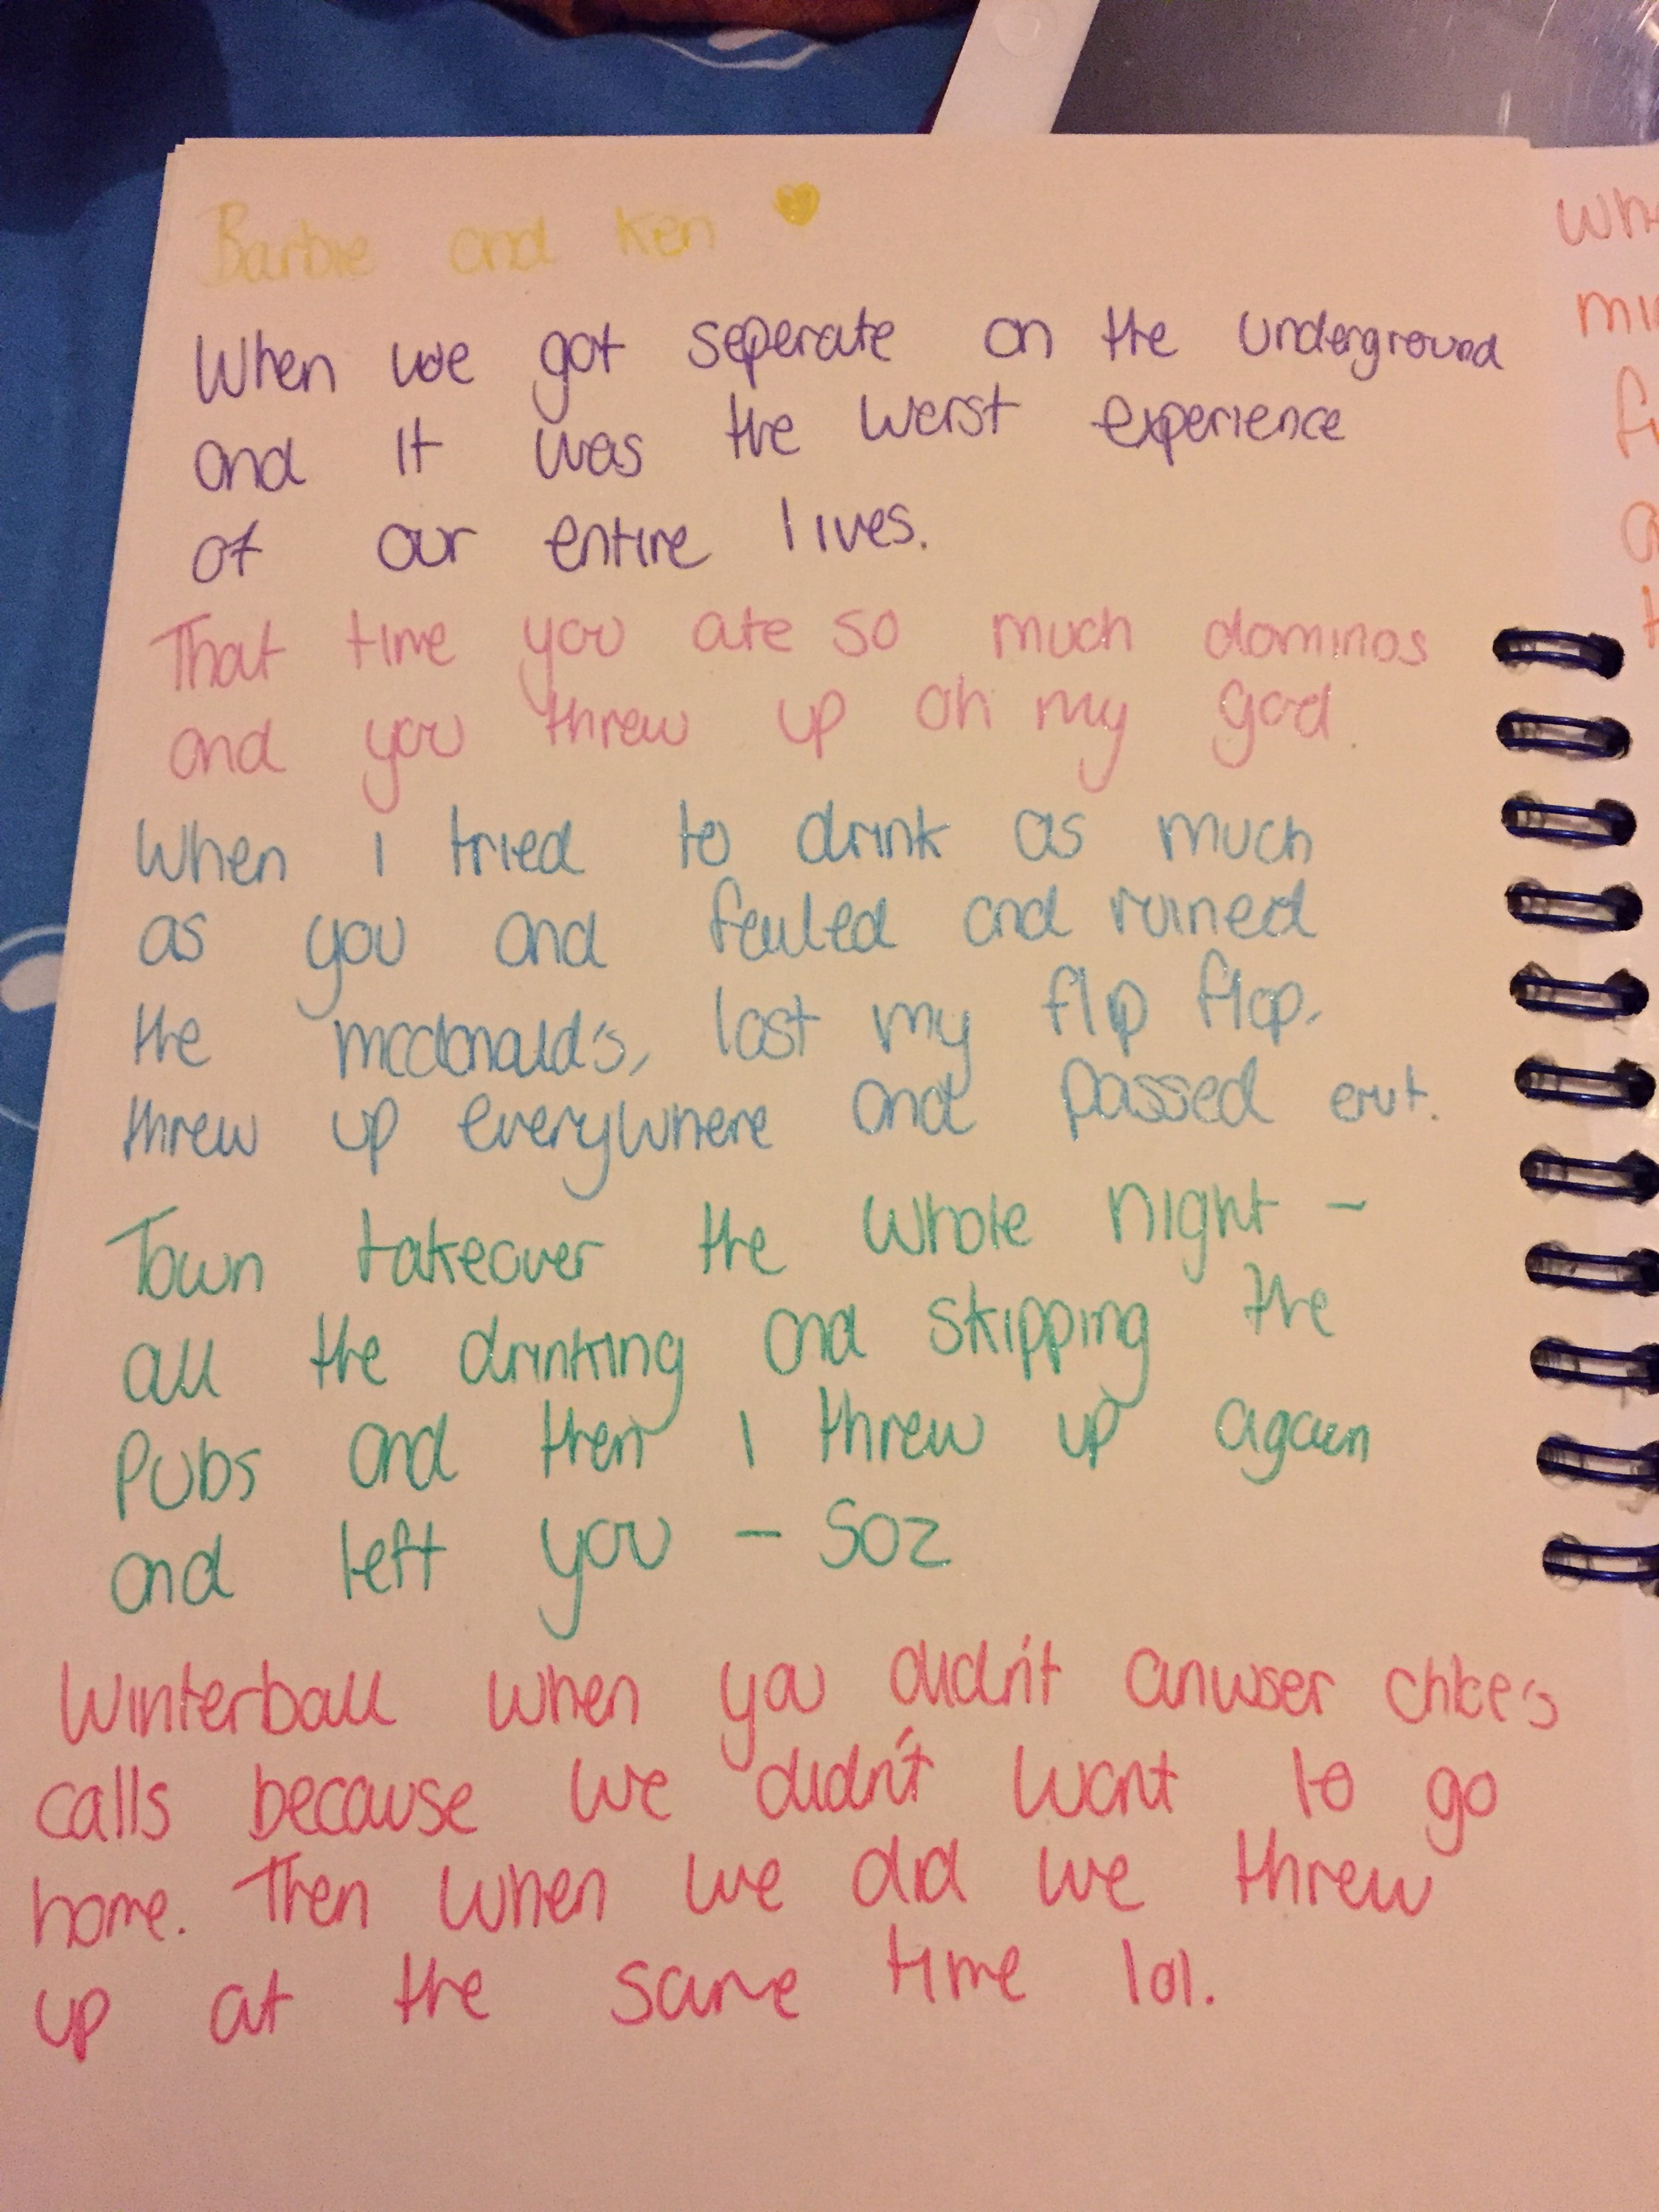 Barbie and Ken
When we got seperate on the underground
and it was the worst experience
of our entire lives.
That time you ate so much dominos
and you threw up oh my god.
When I tried to drink as much
as you and failed and ruined
the mcdonald's, lost my flip flop,
threw up everywhere and passed out.
Town takeover the whole night -
all the drinking and skipping the
Pubs and then I threw up again
and left you - Soz
Winterball when you didn't anwser chloe's
calls because we didn't want to go
home. Then when we did we threw
up at the same time lol.